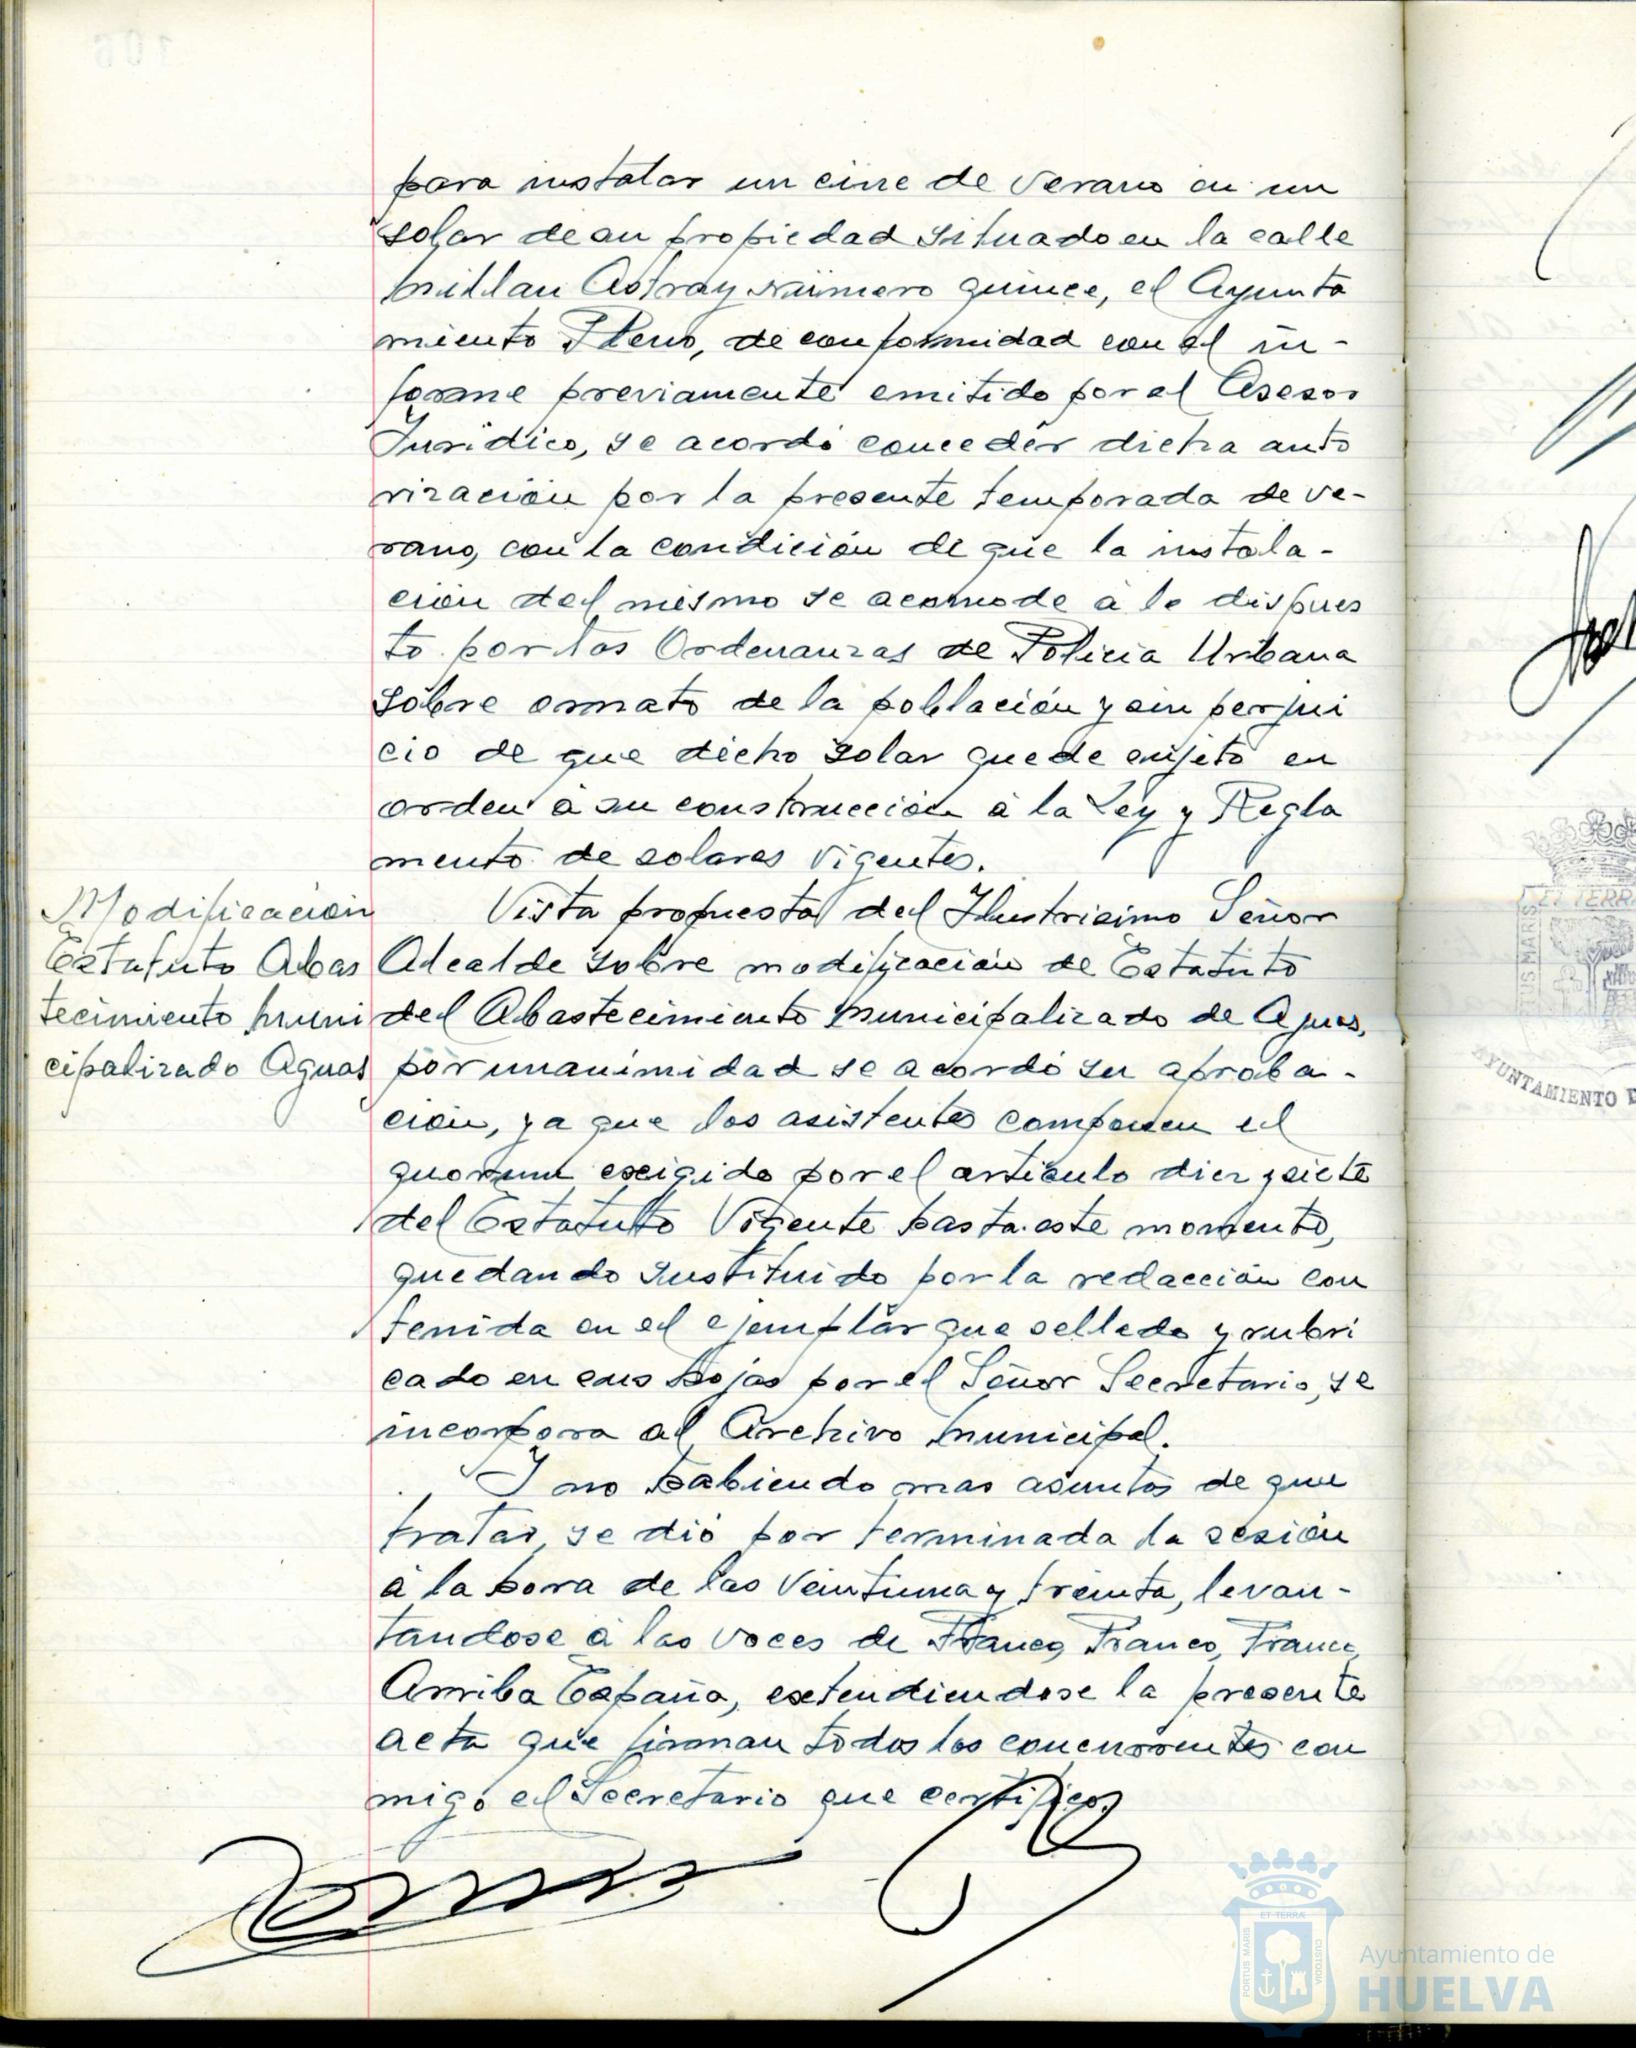 para instalar un cine de verano en un
solar de su propiedad situado en la calle
Millan Astray número quince, el Ayunta
miento Pleno, de conformidad con el in-
forme previamente emitido por el Asesor
Jurídico, se acordó conceder dicha auto
rización por la presente temporada de ve-
rano, con la condición de que la instala-
ción del mismo se acomode a lo dispues
to por las Ordenanzas de Policía Urbana
sobre ornato de la población y sin perjui
cio de que dicho solar quede sujeto en
orden á su construcción á la Ley y Regla
mento de solares vigentes.
Modificación
Estatuto Abas
tecimiento Muni
cipalizado Aguas
Vista propuesta del Ilustrisimo Señor
Alcalde sobre modificación de Estatuto
del Abastecimiento Municipalizado de Aguas,
por unanimidad se acordó su aproba-
ción, ya que los asistentes componen el
quorum exigido por el artículo diez y siete
del Estatuto Vigente hasta este momento,
quedando sustituido por la redacción con
tenida en el ejemplar que sellado y rubri
cado en sus hojas por el Señor Secretario, se
incorpora al Archivo Municipal.
Y no habiendo mas asuntos de que
tratar, se dió por terminada la sesión
á la hora de las veintiuna y treinta, levan-
tandose á las voces de Franco, Franco, Franco,
Arriba España, extendiendose la presente
acta que firman todos los concurrentes con
migo el Secretario que certifico.
ET TERR
AYUNTAMIENTO D
PORTUS MARIS
ET TERRÆ
CUSTODIA
Ayuntamiento de
HUELVA